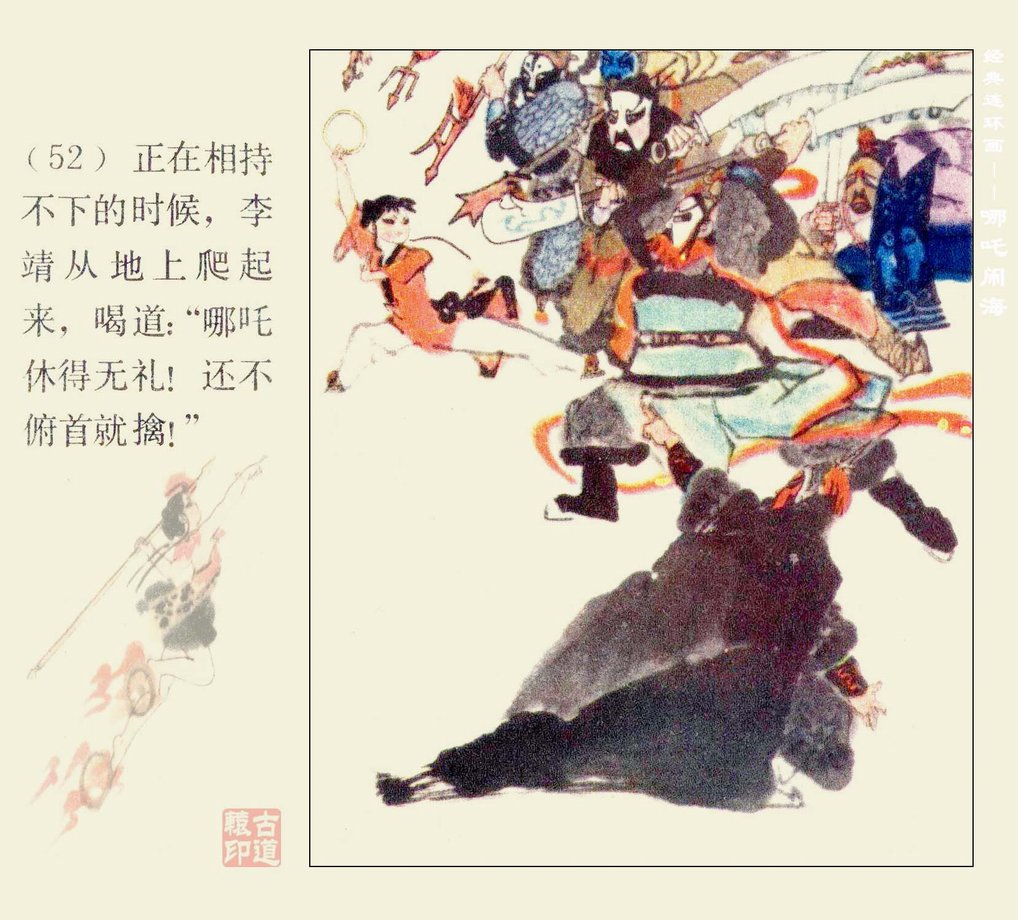 （52） 正在相持
不下的时候，李
靖从地上爬起
来，喝道：“哪吒
休得无礼！还不
俯首就擒！”
经典连环画——哪吒闹海
古道
辕印